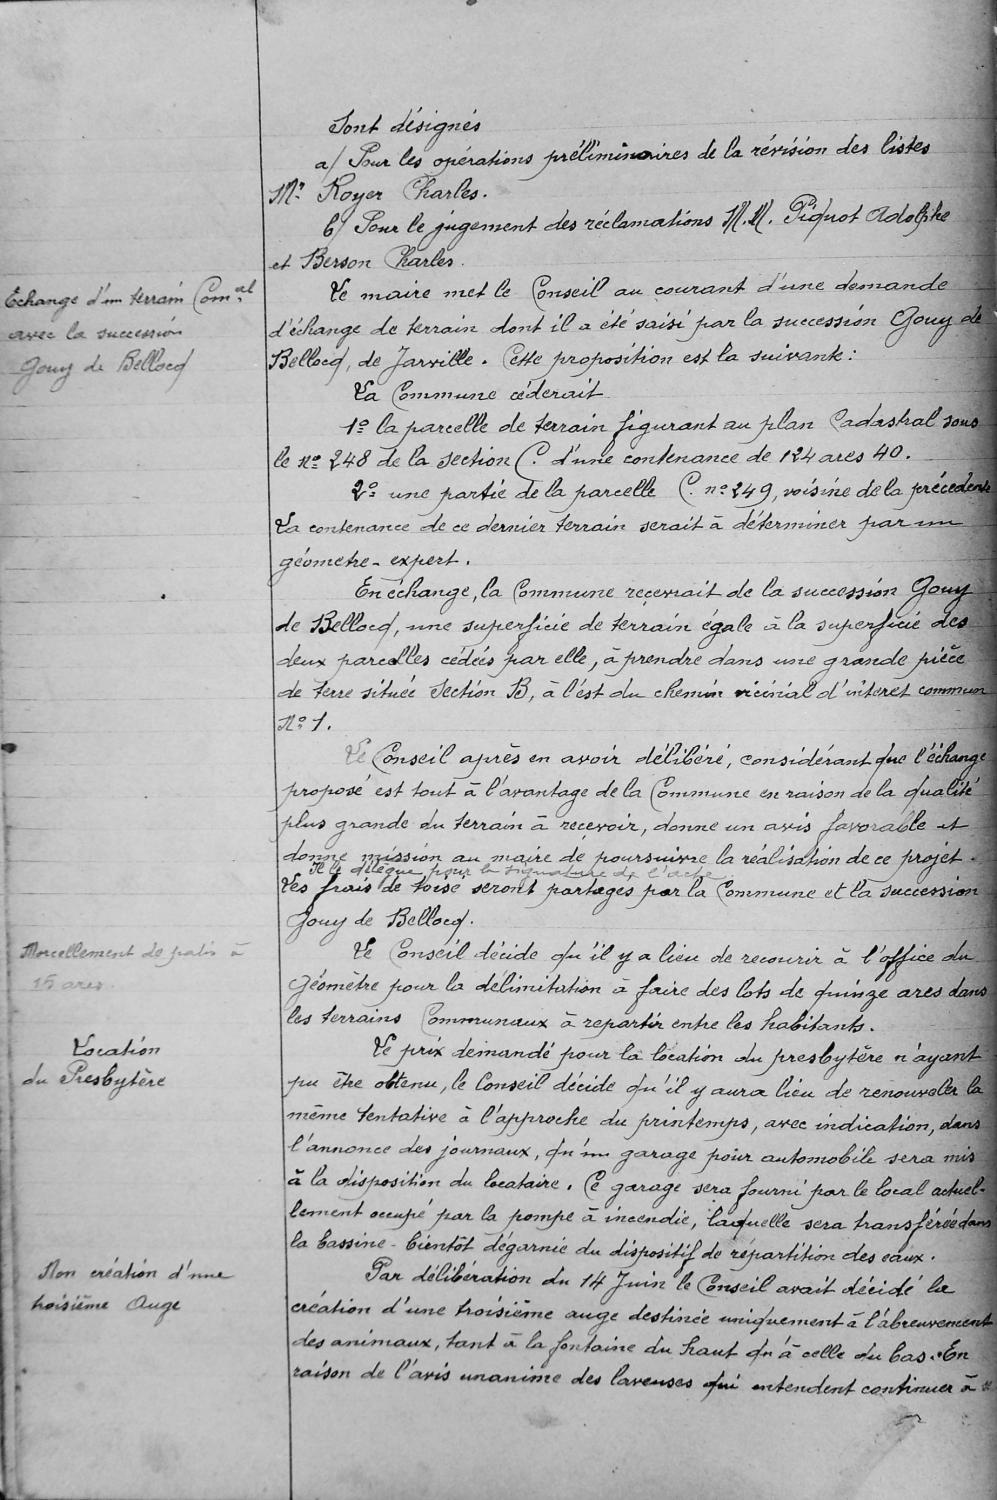 Sont désignés
a/ Pour les opérations préliminaires de la révision des listes
Mr Royer Charles.
b/ Pour le jugement des réclamations M.M. Piquot Adolphe
et Berson Charles.
Echange d'un terrain Com.al
avec la succession
Gouy de Bellocq
Le maire met le Conseil au courant d'une demande
d'échange de terrain dont il a été saisi par la succession Gouy de
Bellocq, de Jarville. Cette proposition est la suivante :
La Commune céderait
1º la parcelle de terrain figurant au plan Cadastral sous
le nº 248 de la section C. d'une contenance de 124 ares 40.
2º une partie de la parcelle C. nº 249, voisine de la précédente
La contenance de ce dernier terrain serait à déterminer par un
géomètre-expert.
En échange, la Commune recevrait de la succession Gouy
de Bellocq, une superficie de terrain égale à la superficie des
deux parcelles cédées par elle, à prendre dans une grande pièce
de terre située section B, à l'est du chemin vicinial d'intérêt commun
Nº 1.
Le Conseil après en avoir délibéré, considérant que l'échange
proposé est tout à l'avantage de la Commune en raison de la qualité
plus grande du terrain à recevoir, donne un avis favorable et
donne mission au maire de poursuivre la réalisation de ce projet.
Il le délègue pour la signature de l'acte
Les frais de toise seront partagés par la Commune et la succession
Gouy de Bellocq.
Morcellement de patis à
15 ares.
Le Conseil décide qu'il y a lieu de recourir à l'office du
Géomètre pour la délimitation à faire des lots de quinze ares dans
les terrains Communaux à repartir entre les habitants.
Location
du Presbytère
Le prix demandé pour la location du presbytère n'ayant
pu être obtenu, le Conseil décide qu'il y aura lieu de renouveler la
même tentative à l'approche du printemps, avec indication, dans
l'annonce des journaux, qu'un garage pour automobile sera mis
à la disposition du locataire. Ce garage sera fourni par le local actuel-
lement occupé par la pompe à incendie, laquelle sera transférée dans
la bassine - bientôt dégarnie du dispositif de répartition des eaux.
Non création d'une
troisième Auge
Par délibération du 14 Juin le Conseil avait décidé la
création d'une troisième auge destinée uniquement à l'abreuvement
des animaux, tant à la fontaine du haut qu'à celle du bas. En
raison de l'avis unanime des laveuses qui entendent continuer à